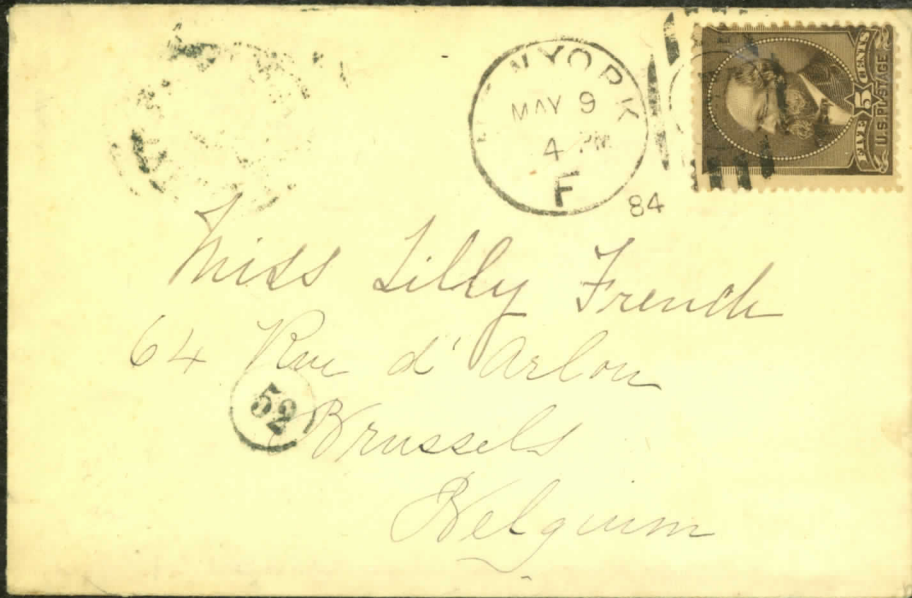 NYORK
MAY 9
4 PM
F
84
FIVE 5 CENTS
U.S. POSTAGE
Miss Lilly French
64 Rue d' Arlon
52
Brussels
Belgium